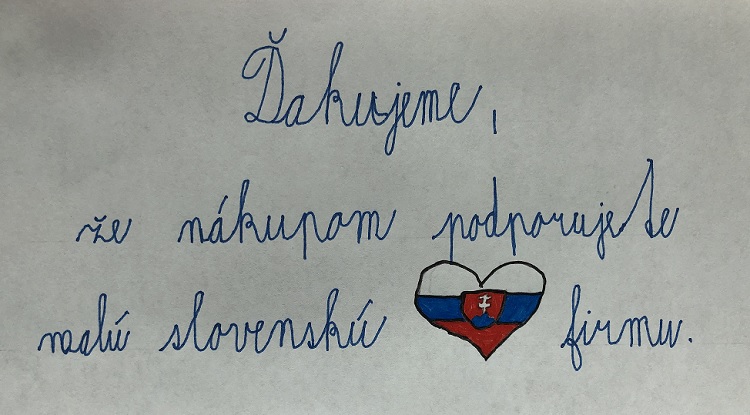 Ďakujeme,
že nákupom podporujete
malú slovenskú firmu.